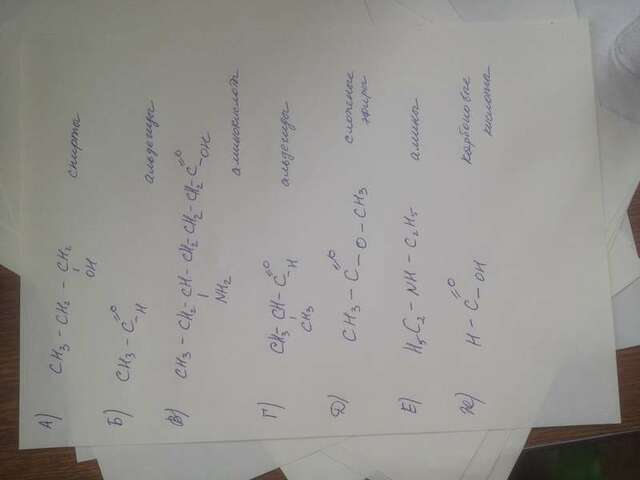 А) CH3 - CH2 - CH2 спирты
OH
Б) CH3 - C =O
H альдегиды
В) CH3 - CH2 - CH - CH2 - CH2 - CH2 - C =O
OH
NH2 аминокислота
Г) CH3 - CH - C =O альдегиды
H
CH3
Д) CH3 - C =O сложные
O - CH3 эфиры
Е) H5C2 - NH - C2H5 амины
Ж) H - C =O карбоновые
OH кислота